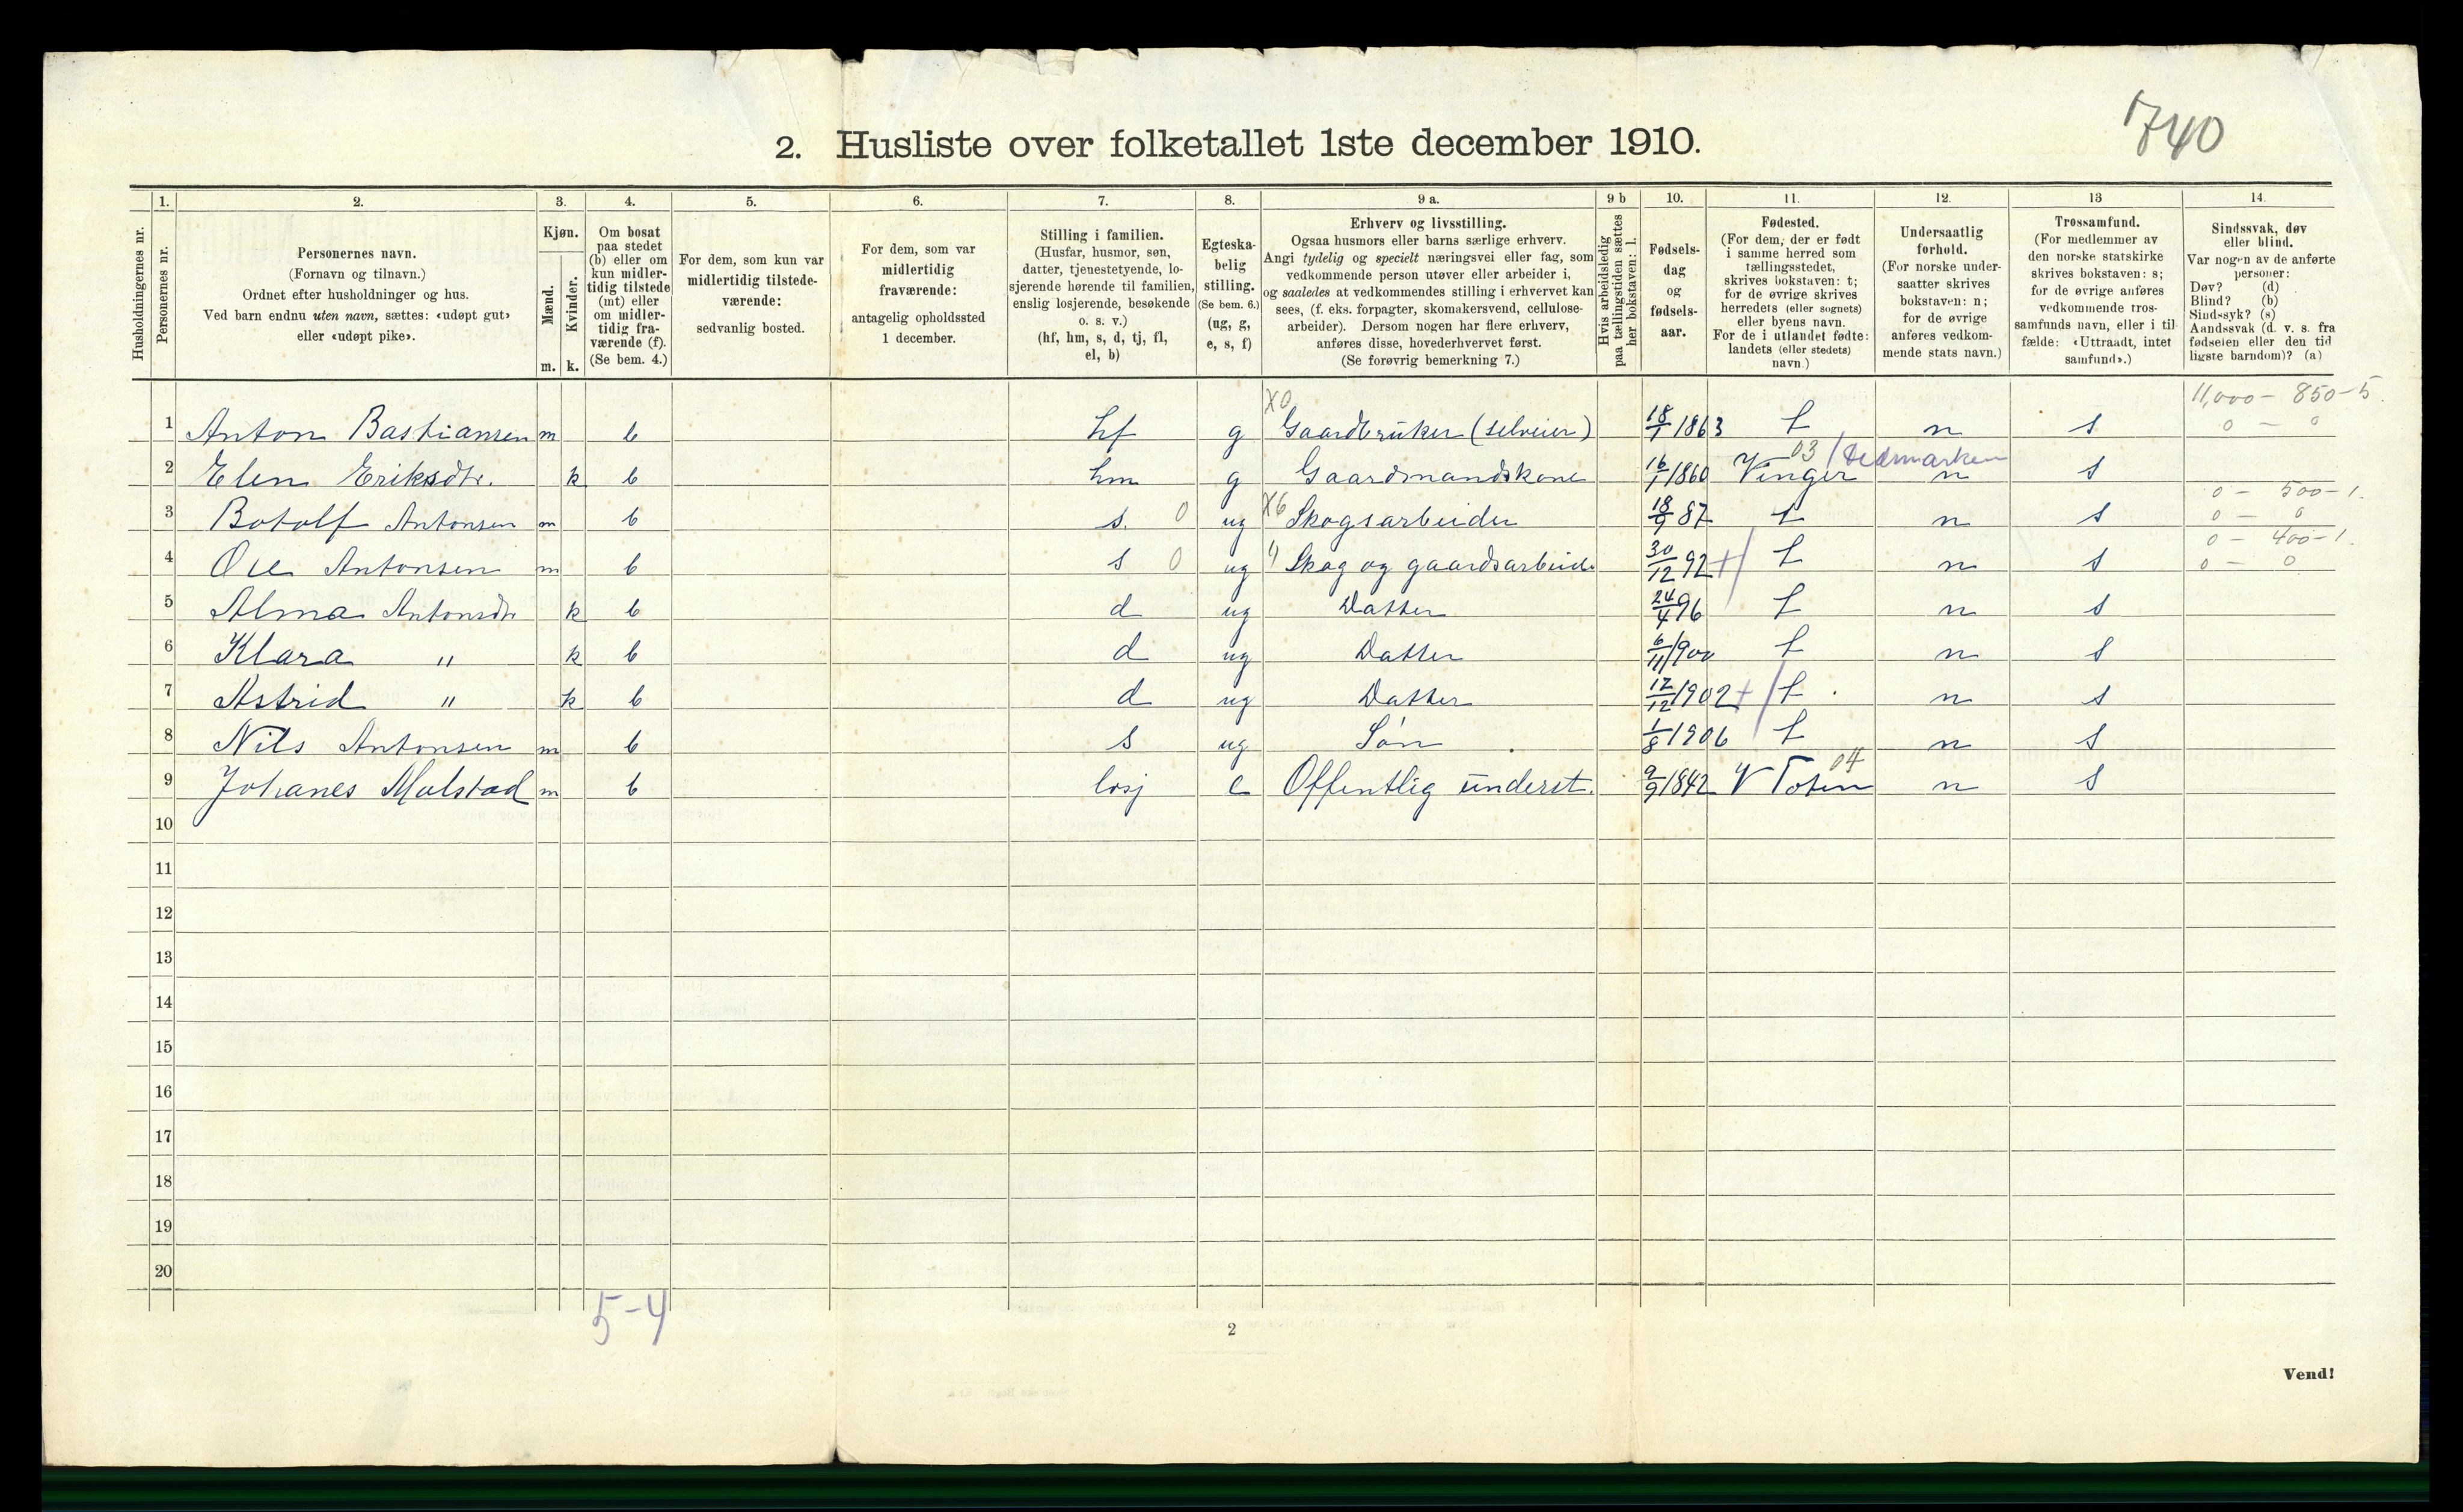 740
2. Husliste over folketallet 1ste december 1910.
Husholdningernes nr.
1.
Personernes nr.
2.
Personernes navn.
(Fornavn og tilnavn.)
Ordnet efter husholdninger og hus.
Ved barn endnu uten navn, sættes: «udøpt gut»
eller «udøpt pike».
3.
Kjøn.
Mænd.
Kvinder.
m. k.
4.
Om bosat
paa stedet
(b) eller om
kun midler-
tidig tilstede
(mt) eller
om midler-
tidig fra-
værende (f).
(Se bem. 4.)
5.
For dem, som kun var
midlertidig tilstede-
værende:
sedvanlig bosted.
6.
For dem, som var
midlertidig
fraværende:
antagelig opholdssted
1 december.
7.
Stilling i familien.
(Husfar, husmor, søn,
datter, tjenestetyende, lo-
sjerende hørende til familien,
enslig losjerende, besøkende
o. s. v.)
(hf, hm, s, d, tj, fl,
el, b)
8.
Egteska-
belig
stilling.
(Se bem. 6.)
(ug, g,
e, s, f)
9 a.
Erhverv og livsstilling.
Ogsaa husmors eller barns særlige erhverv.
Angi tydelig og specielt næringsvei eller fag, som
vedkommende person utøver eller arbeider i,
og saaledes at vedkommendes stilling i erhvervet kan
sees, (f. eks. forpagter, skomakersvend, cellulose-
arbeider). Dersom nogen har flere erhverv,
anføres disse, hovederhvervet først.
(Se forøvrig bemerkning 7.)
9 b
Hvis arbeidsledig
paa tællingstiden sættes
her bokstaven: l.
10.
Fødsels-
dag
og
fødsels-
aar.
11.
Fødested.
(For dem, der er født
i samme herred som
tællingsstedet,
skrives bokstaven: t;
for de øvrige skrives
herredets (eller sognets)
eller byens navn.
For de i utlandet fødte:
landets (eller stedets)
navn.)
12.
Undersaatlig
forhold.
(For norske under-
saatter skrives
bokstaven: n;
for de øvrige
anføres vedkom-
mende stats navn.)
13
Trossamfund.
(For medlemmer av
den norske statskirke
skrives bokstaven: s;
for de øvrige anføres
vedkommende tros-
samfunds navn, eller i til-
fælde: «Uttraadt, intet
samfund».)
14.
Sindssvak, døv
eller blind.
Var nogen av de anførte
personer:
Døv? (d)
Blind? (b)
Sindssyk? (s)
Aandssvak (d. v. s. fra
fødselen eller den tid
ligste barndom)? (a)
X0 11,000 - 850-5.
1 Anton Bastiansen m b hf g Gaardbruker (selveier) 18/1 1863 t n s 0 - 0
03 / Hedmarken
2 Elen Eriksdtr. k b hm g Gaardmandskone 16/1 1860 Vinger n s
0 - 500-1.
3 Botolf Antonsen m b s. 0 ug X6 Skogsarbeider 18/9 87 t n s 0 - 0
0 - 400-1.
4 Ole Antonsen m b s 0 ug " Skog og gaardsarbeide 30/12 92 + / t n s 0 - 0
5 Alma Antonsdtr k b d ug Datter 24/4 96 t n s
6 Klara " k b d ug Datter 6/11 1900 t n s
7 Astrid " k b d ug Datter 12/12 1902 + / t n s
8 Nils Antonsen m b s ug Søn 1/8 1906 t n s
04
9 Johanes Mulstad m b losj e Offentlig underst. 9/9 1842 V Toten n s
10
11
12
13
14
15
16
17
18
19
20
5-4
2
Vend!